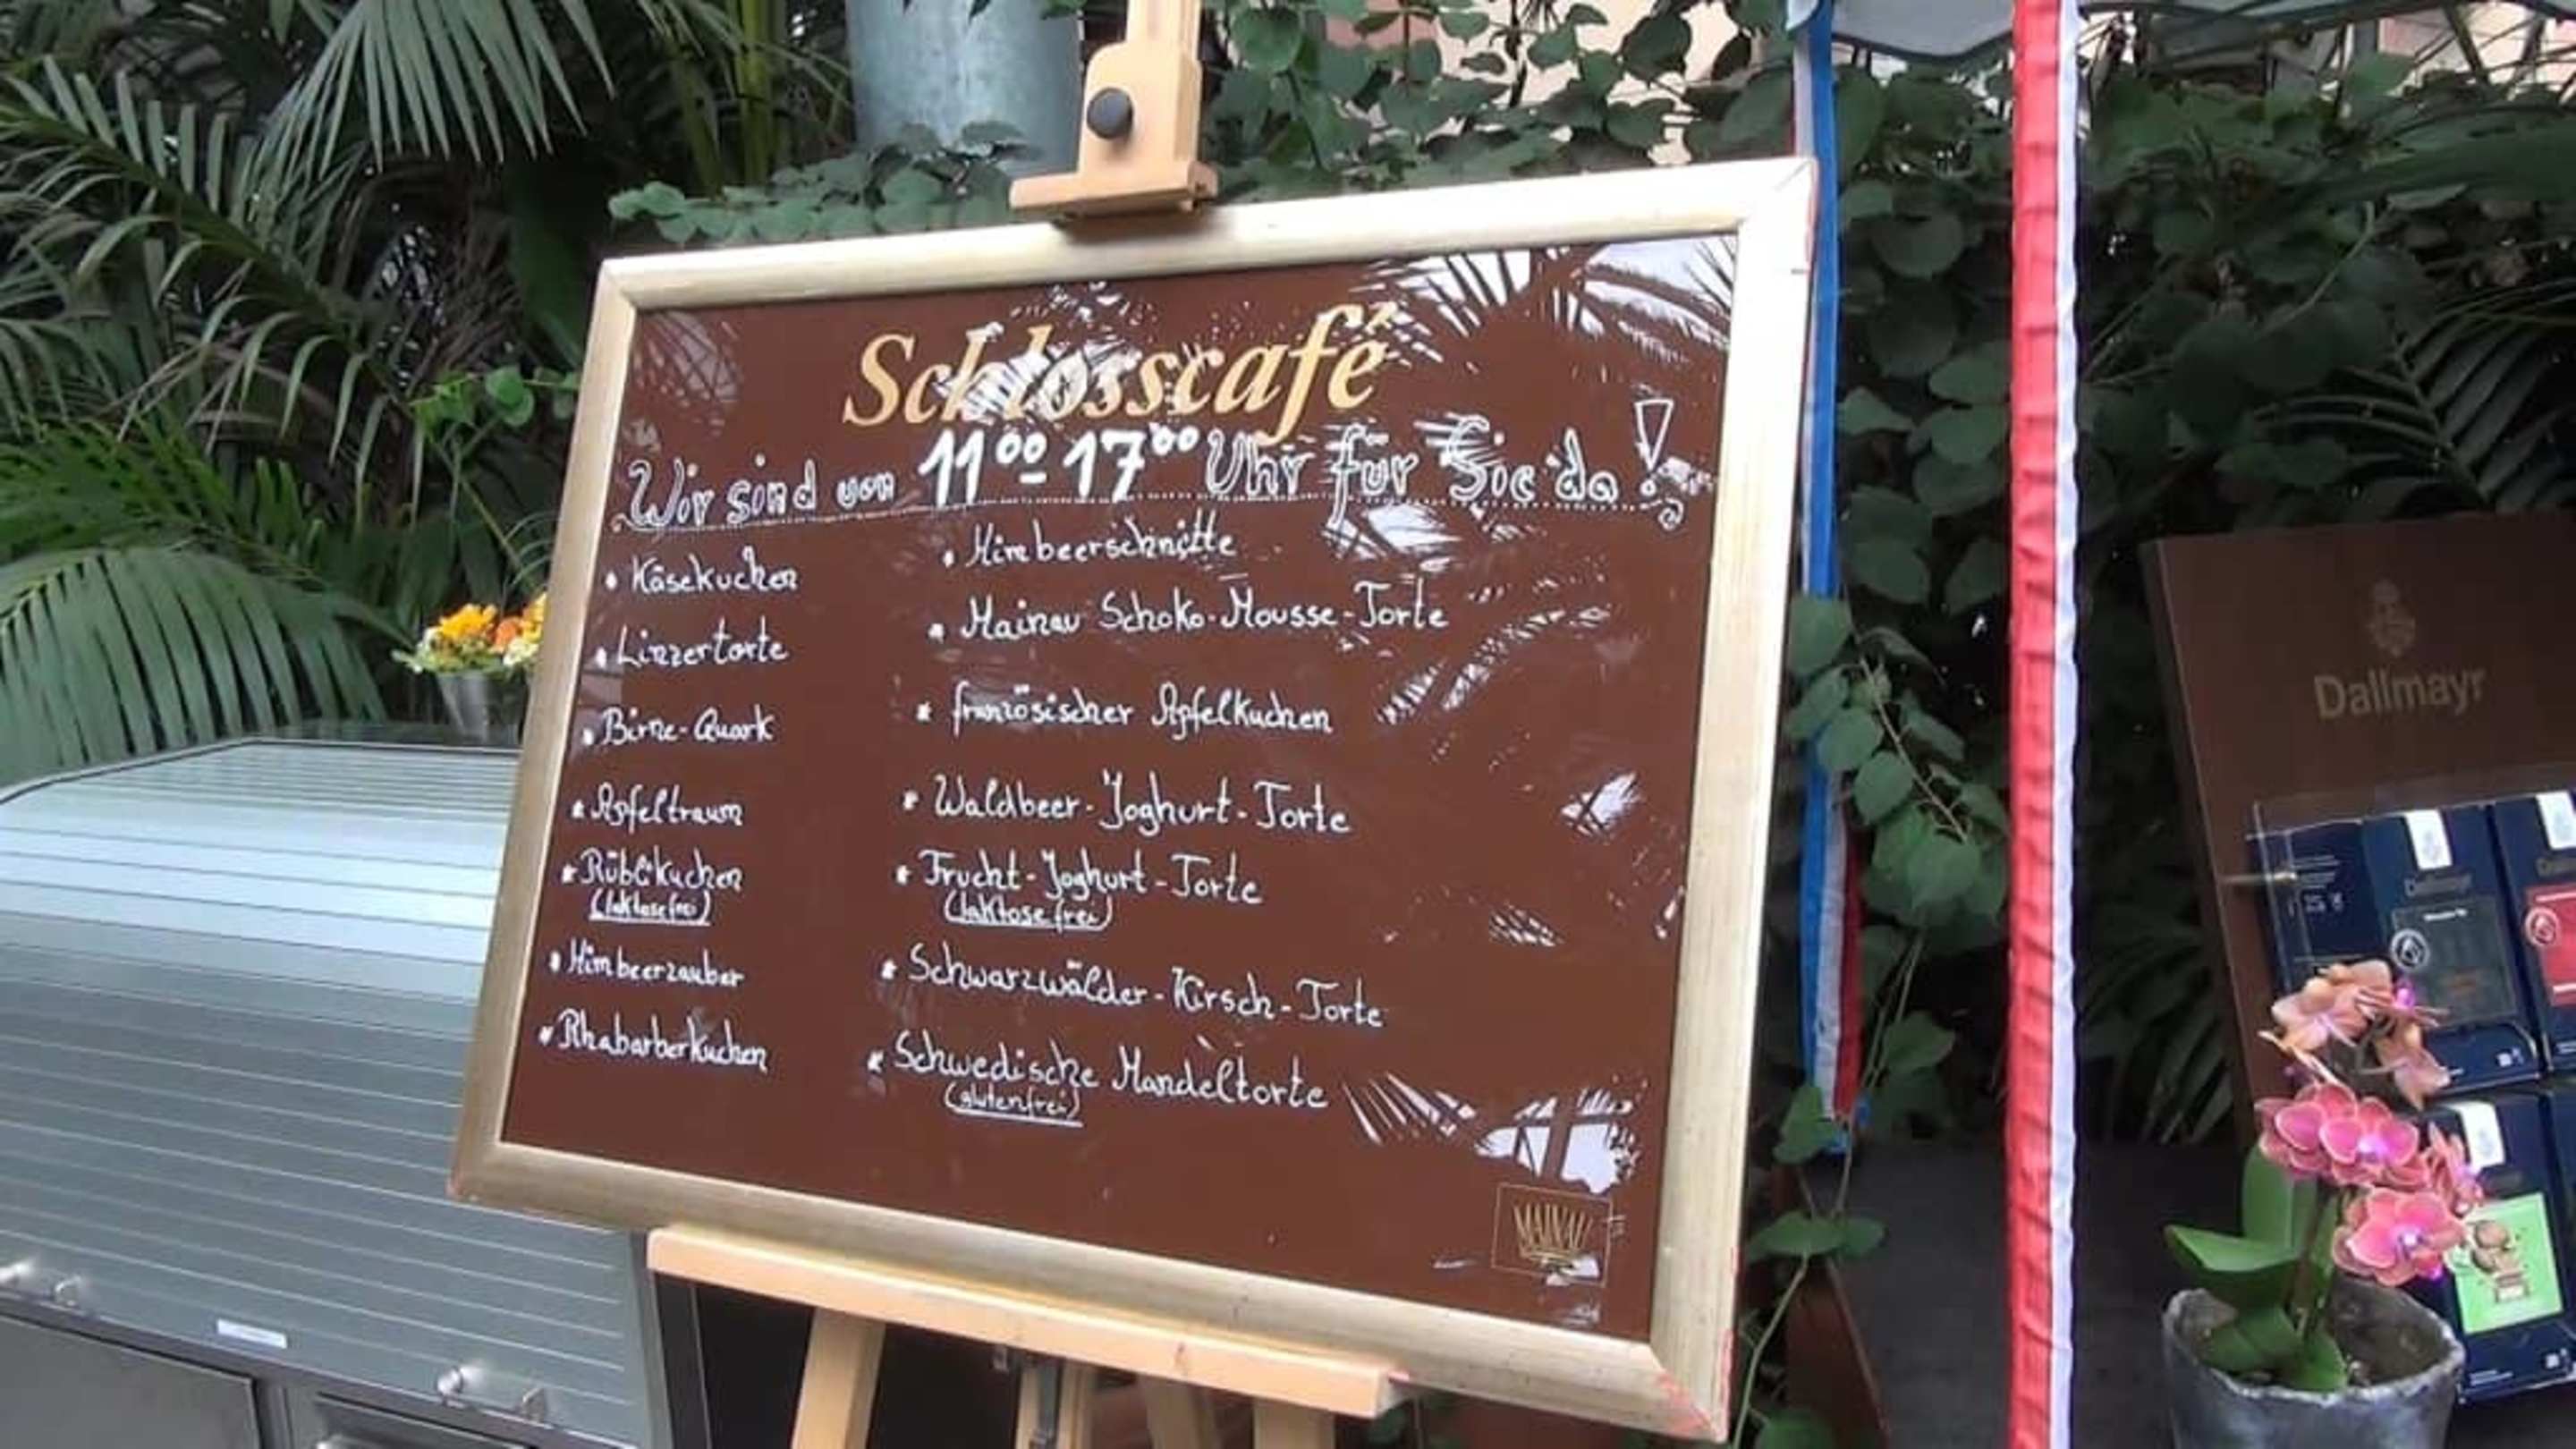 Schlosscafé
Wir sind von 11⁰⁰-17⁰⁰ Uhr für Sie da!
• Käsekuchen
• Linzertorte
• Birne-Quark
• Apfeltraum
• Rüblikuchen
(laktosefrei)
• Himbeerzauber
• Rhabarberkuchen
• Himbeerschnitte
• Mainau Schoko-Mousse-Torte
• französischer Apfelkuchen
• Waldbeer-Joghurt-Torte
• Frucht-Joghurt-Torte
(laktosefrei)
• Schwarzwälder-Kirsch-Torte
• Schwedische Mandeltorte
(glutenfrei)
MAINAU
Dallmayr